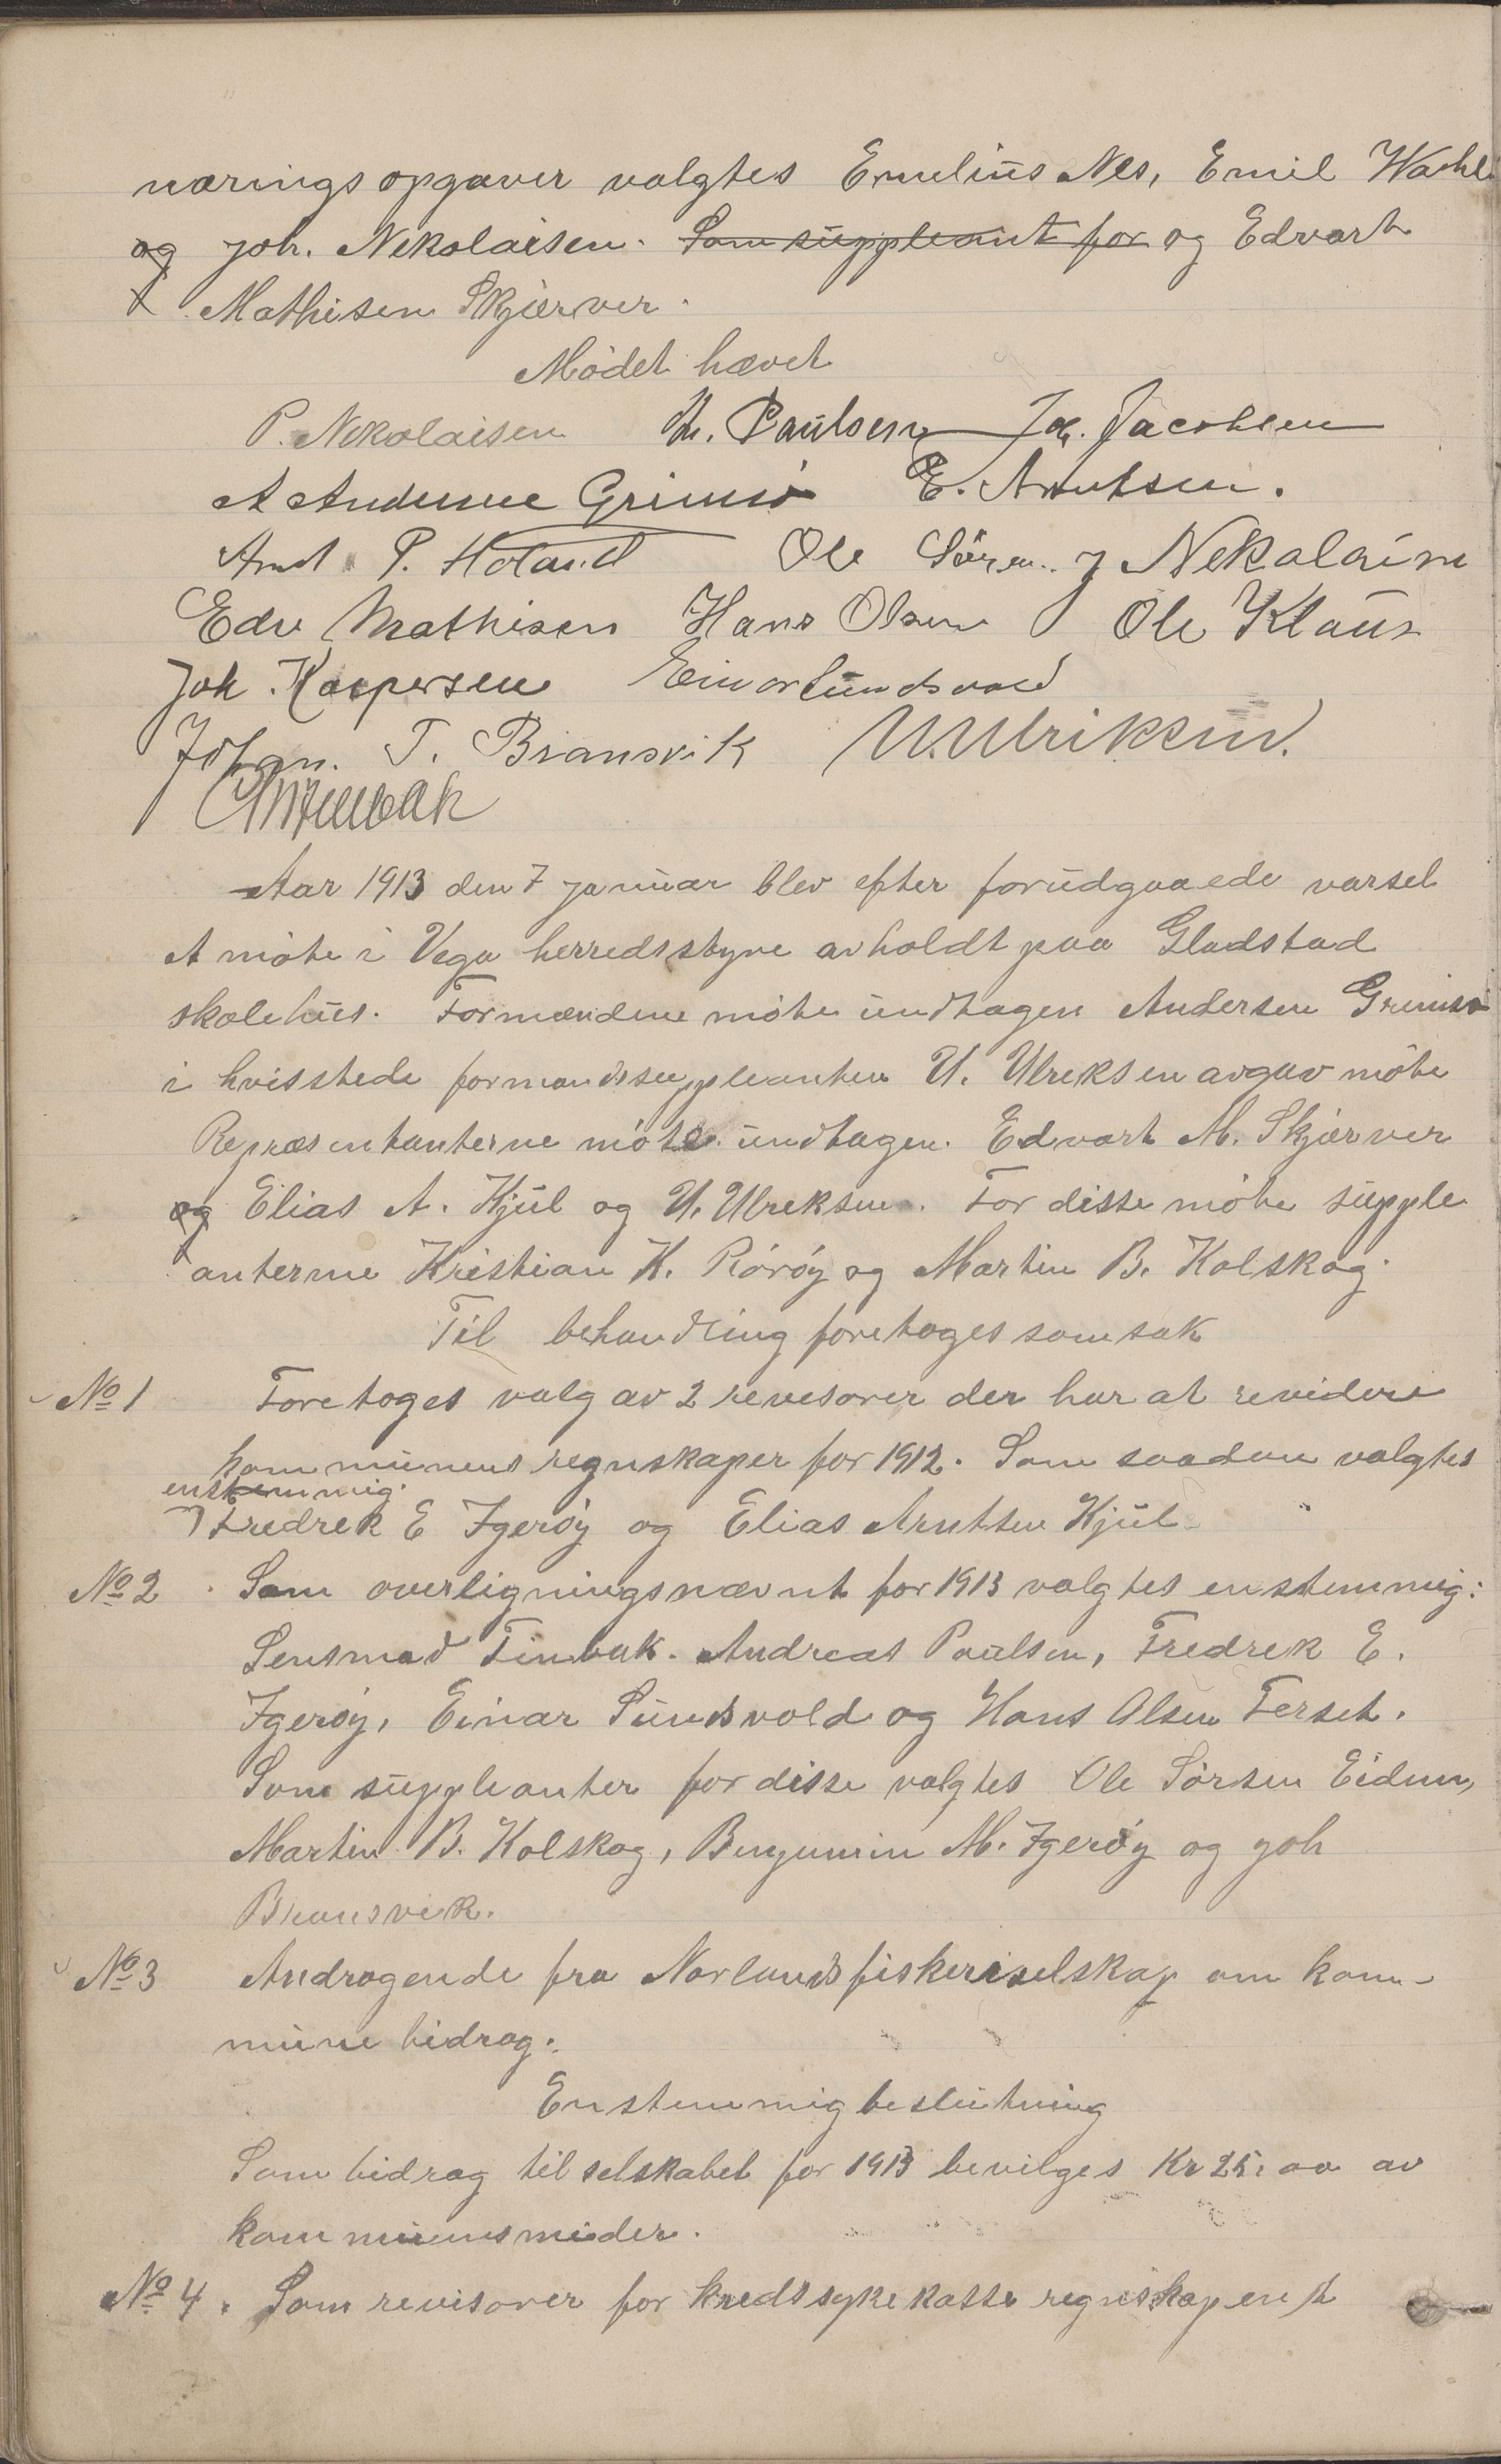 næringsopgaver valgtes Emelius Nes, Emil Wahl
og Joh. Nekolaisen. Som suppleant for og Edvart
Mathisen Skjærver.
Mödet hævet
P. Nekolaisen Kr. Paulsen Jak. Jacobsen
A Andersen Grimsö E. Arntsen.
Arnt P. Holand Ole Sören. J Nekolaisen
Edv Mathisen Hans Olsen Ole Klaus
Joh. Kaspersen Einar Sundsvold
Johan. T. Bransvik U. Ulriksen.
Aar 1913 den 7 januar blev efter forudgaaede varsel
et möte i Vega herredsstyre avholdt paa Gladstad
skolehus. Formændene möte undtagen Andersen Grimsö
i hvis stede formandssuppleanten U. Ulreksen avgav möte
Repræsentanterne möte undtagen. Edvart M. Skjærver
og Elias A. Kjul og U. Ulreksen. For disse möte supple
anterne Kristian K. Röröy og Martin B. Kolskog.
Til behandling foretoges som sak
No 1 Foretoges valg av 2 revesorer der har at revidere
kommunens regnskaper for 1912. Som saadan valgtes
enstemmig.
Fredrek E Igeröy og Elias Arntsen Kjul
No 2 Som overligningsnævnt for 1913 valgtes enstemmig:
Lensmad Finbak. Andreas Paulsen, Fredrek E.
Igeröy, Einar Sundsvold og Hans Olsen Ferset.
Som suppleanter for disse valgtes Ole Sörsen Eidem,
Martin B. Kolskog, Benjamin M. Igeröy og Joh
Bransvik.
No 3 Andragende fra Norlands fiskeriselskap om kom-
mune bidrag.
Enstemmig beslutning
Som bidrag til selskabet for 1913 bevilges Kr 25,00 av
kommunens midler.
No 4. Som revisorer for kredssykekasse regnskapenst